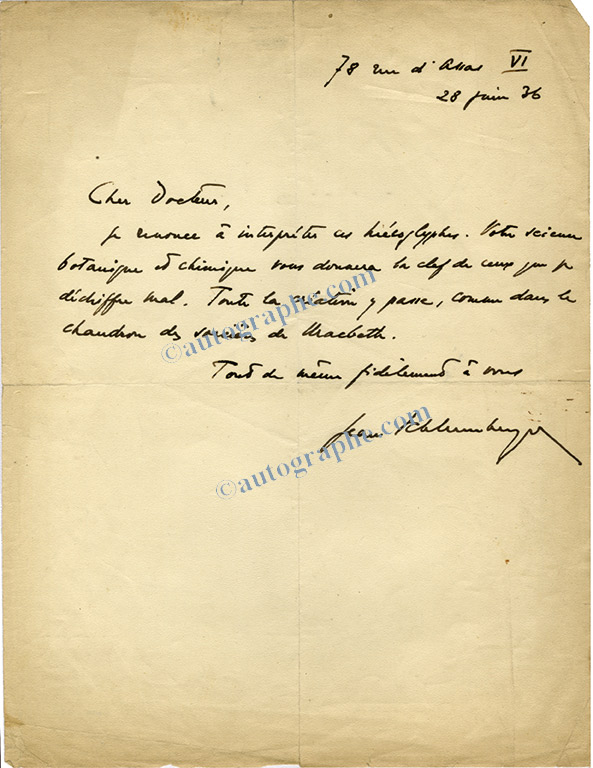 78 rue d'Assas VI
28 juin 36
Cher Docteur,
je renonce à interpréter ces hiéroglyphes. Votre science
botanique et chimique vous donnera la clef de ceux que je
déchiffre mal. Toute la création y passe, comme dans le
chaudron des sorcières de Macbeth.
©autographe.com
Tout de même fidèlement à vous
Jean Schlumberger
©autographe.com